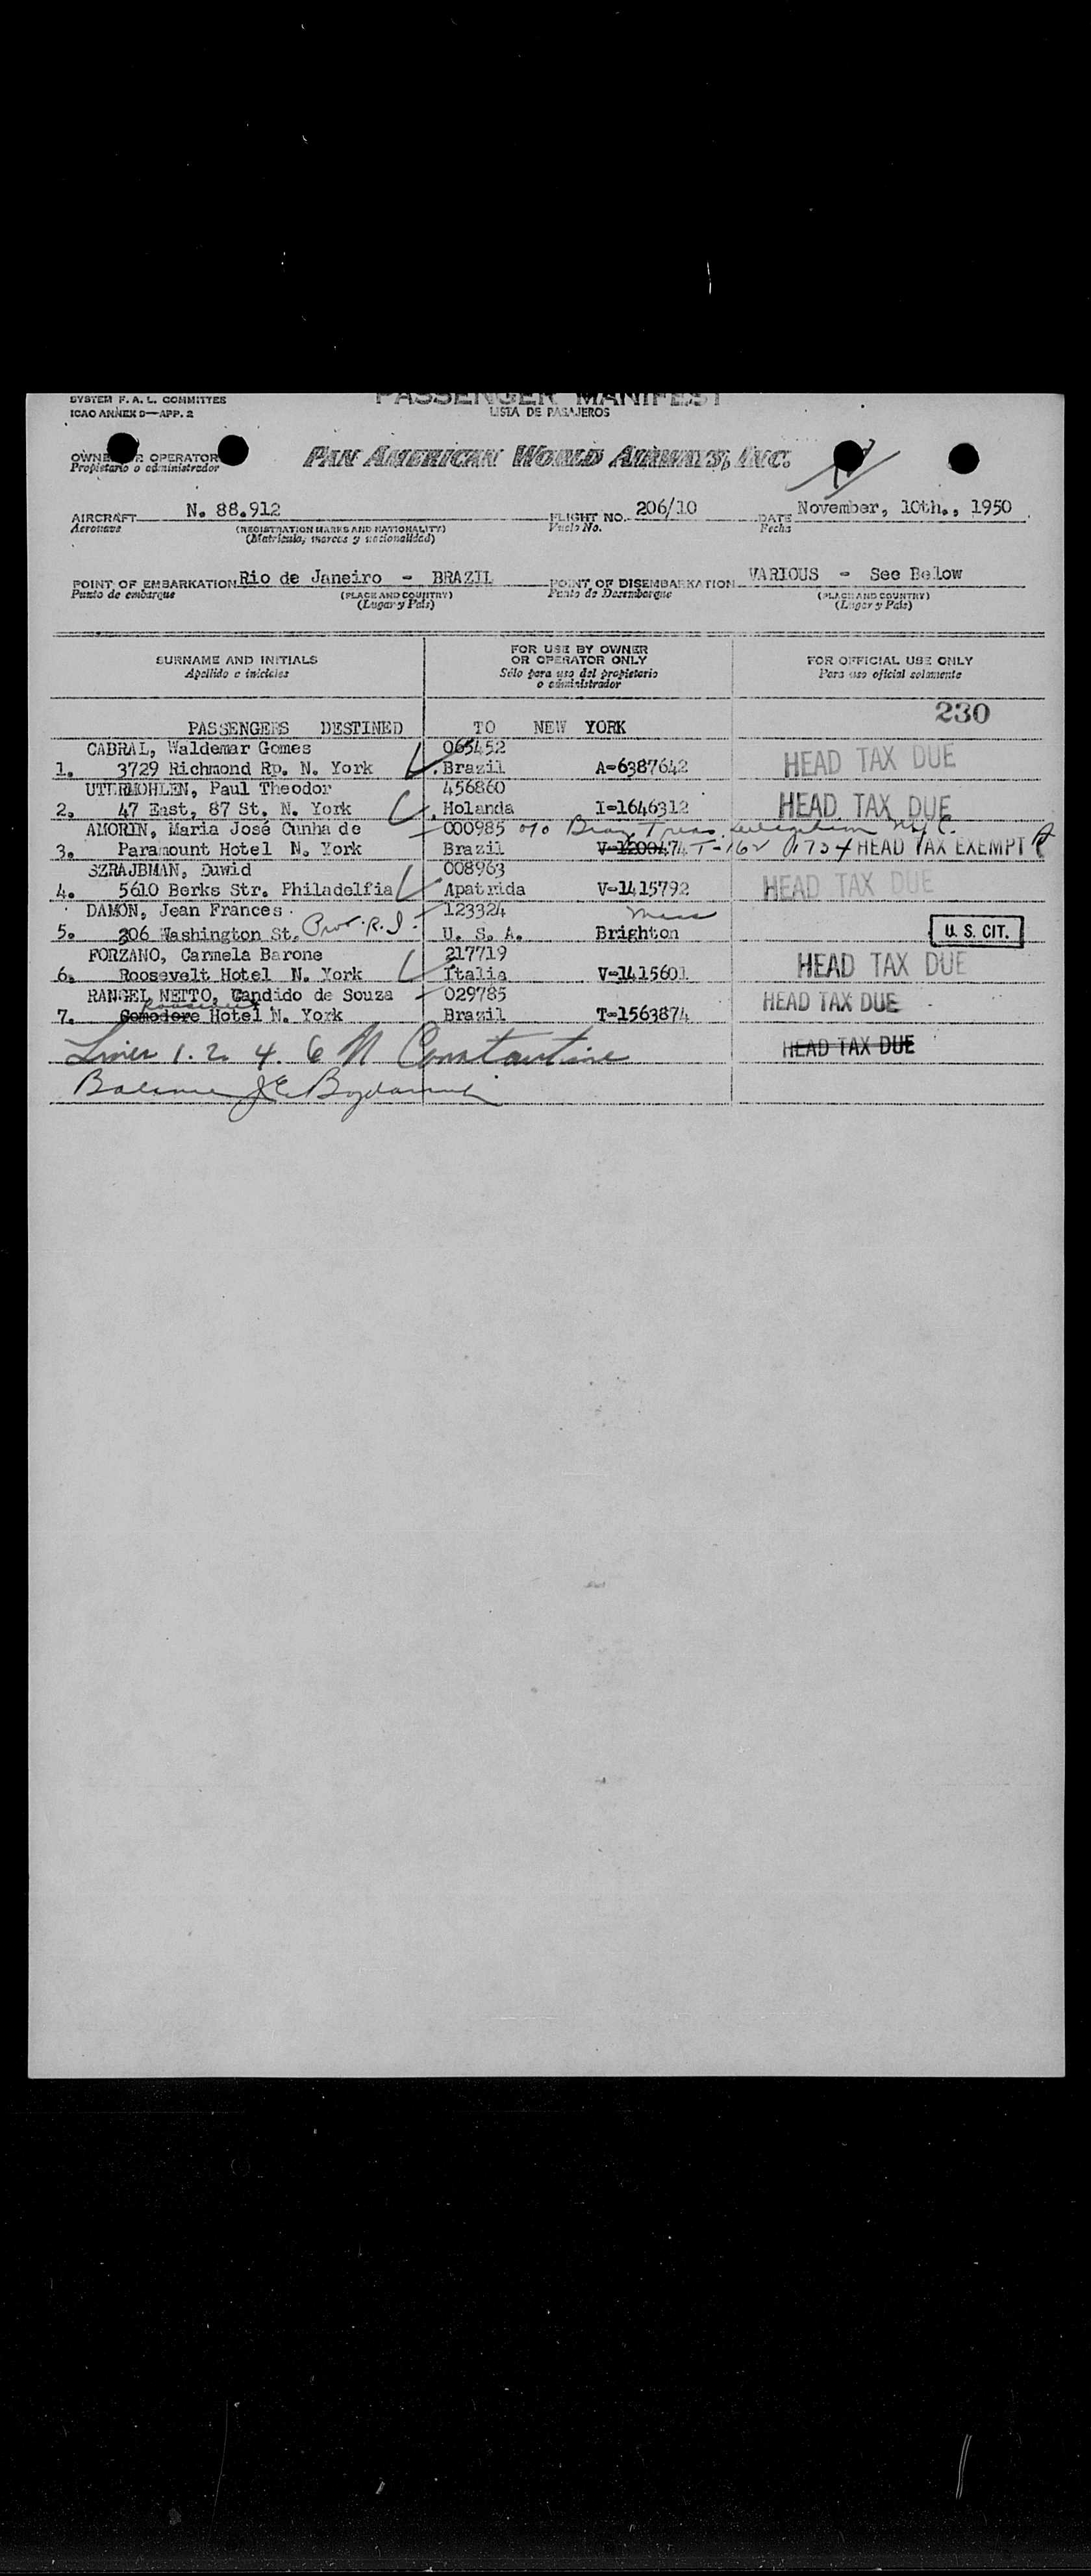 SYSTEM F. A. L. COMMITTEE
ICAO ANNEX 9—APP. 2
PASSENGER MANIFEST
LISTA DE PASAJEROS
OWNER OR OPERATOR
Propietario o administrador
PAN AMERICAN WORLD AIRWAYS, INC.
AIRCRAFT N. 88.912 FLIGHT NO. 206/10 DATE November, 10th., 1950
Aeronave (REGISTRATION MARKS AND NATIONALITY) Vuelo No. Fecha
(Matricula, marcas y nacionalidad)
POINT OF EMBARKATION Rio de Janeiro - BRAZIL POINT OF DISEMBARKATION VARIOUS - See Below
Punto de embarque (PLACE AND COUNTRY) Punto de Desembarque (PLACE AND COUNTRY)
(Lugar y País) (Lugar y País)
SURNAME AND INITIALS
Apellido e iniciales
FOR USE BY OWNER
OR OPERATOR ONLY
Sólo para uso del propietario
o administrador
FOR OFFICIAL USE ONLY
Para uso oficial solamente
230
PASSENGERS DESTINED TO NEW YORK
CABRAL, Waldemar Gomes 065452
1. 3729 Richmond Rp. N. York Brazil A-6387642 HEAD TAX DUE
UTERMOHLEN, Paul Theodor 456860
2. 47 East, 87 St. N. York Holanda I-1646312 HEAD TAX DUE
AMORIN, Maria José Cunha de 000985 c/o Braz Treas. Delegation N.Y.C.
3. Paramount Hotel N. York Brazil V-1200474 T-162 HEAD TAX EXEMPT
SZRAJBMAN, Duwid 008963
4. 5610 Berks Str. Philadelfia Apatrida V-1415792 HEAD TAX DUE
DAMON, Jean Frances 123324 Mass
5. 206 Washington St. Prov. R.I. U. S. A. Brighton U. S. CIT.
FORZANO, Carmela Barone 217719
6. Roosevelt Hotel N. York Italia V-1415601 HEAD TAX DUE
RANGEL NETTO, Candido de Souza 029785
Roosevelt
7. Comodore Hotel N. York Brazil T-1563874 HEAD TAX DUE
Lines 1. 2. 4. 6 N Constantine HEAD TAX DUE
Balance J E